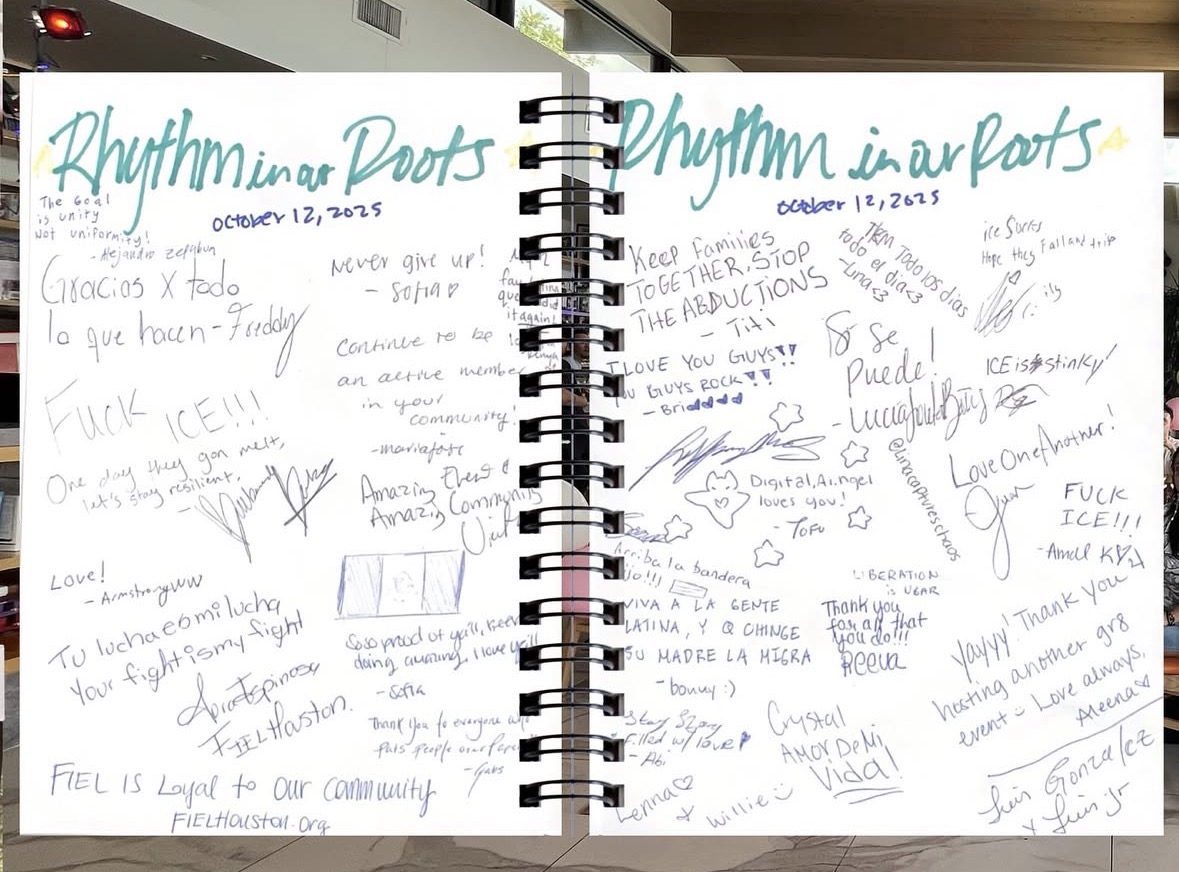 Rhythm in our Roots
October 12, 2025
The Goal
is unity
Not uniformity!
- Alejandro
Gracias X todo
lo que hacen - Freddy
Fuck ICE!!!
One day they gon melt,
let's stay resilient,
Love!
- Armstrongww
Tu lucha es mi lucha
Your fight is my fight
FIELHouston.
FIEL IS Loyal to our community
FIELHouston.Org
Never give up!
- Sofia
it again!
Continue to be
an active member
in your
community!
- mariajose
Amazing Event &
Amazing Community
Soso proud of ya'll, keep
doing amazing, I love ya'll
- Sofia
Thank you to everyone who
puts people over
- Gabs
Rhythm in our Roots
October 12, 2025
Keep Families
TOGETHER, STOP
THE ABDUCTIONS
- Titi
I LOVE YOU GUYS!!
YOU GUYS ROCK!!
- Bri
Digital.Ai.ngel
loves you!
- TOFU
Arriba la bandera
VIVA A LA GENTE
LATINA, Y Q CHINGE
SU MADRE LA MIGRA
- bonny :)
Stay Strong
filled w/ love
- Abi
Lenna
& Willie
TKM Todo los dias
todo el dia <3
- Lina <3
ice Sucks
Hope they Fall and trip
Si Se
Puede!
ICE is stinky
@linacaptureschaos
Love One Another!
FUCK
ICE!!!
LIBERATION
is NEAR
Thank you
for all that
you do!!!
REEVA
Yayyy! Thank you 4
hosting another gr8
event Love always,
Aleena
Crystal
AMOR De Mi
Vida!
Luis Gonzalez
x Luis Jr